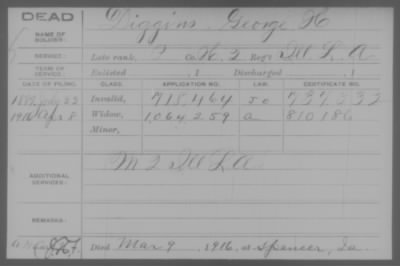 DEAD
NAME OF SOLDIER: Diggins, George H
SERVICE: Late rank, Co. K, 2 Reg't Ill L. A
TERM OF SERVICE: Enlisted , 1 Discharged , 1
DATE OF FILING. CLASS. APPLICATION NO. LAW. CERTIFICATE NO.
1889 July 22 Invalid, 718,464 737,232
1916 Apr 8 Widow, 1,064,259 a 810186
Minor,
ADDITIONAL SERVICES: M 2 Ill LA
REMARKS:
Died Mar 9, 1916, at Spencer, Ia.